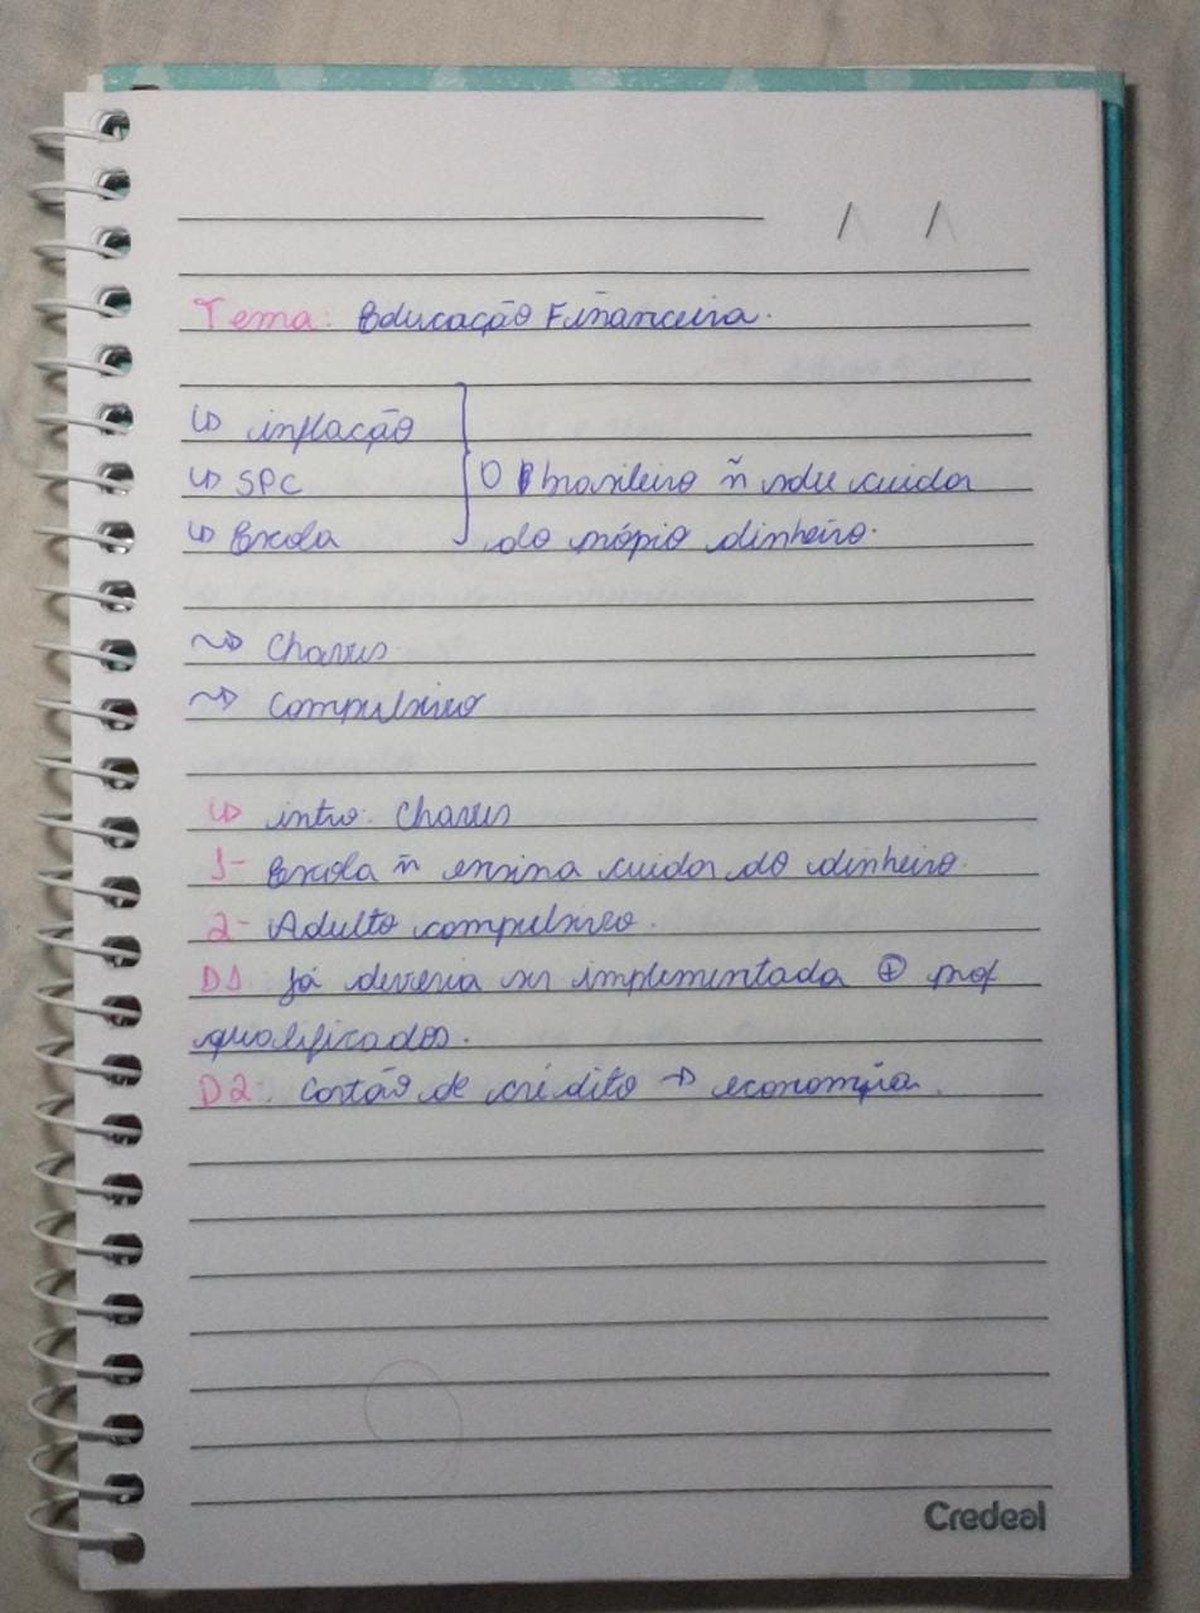 / /
Tema: Educação Financeira.
↳ inflação
↳ SPC
↳ Escola
O brasileiro ñ sabe cuidar
do própio dinheiro.
~> Chaves
~> Compulsivo
↳ intro: Chaves
1- Escola ñ ensina cuidar do dinheiro.
2- Adulto compulsivo.
D1 Já deveria ser implementada ⊕ prof
qualificados.
D2: Cartão de crédito → economia.
Credeal